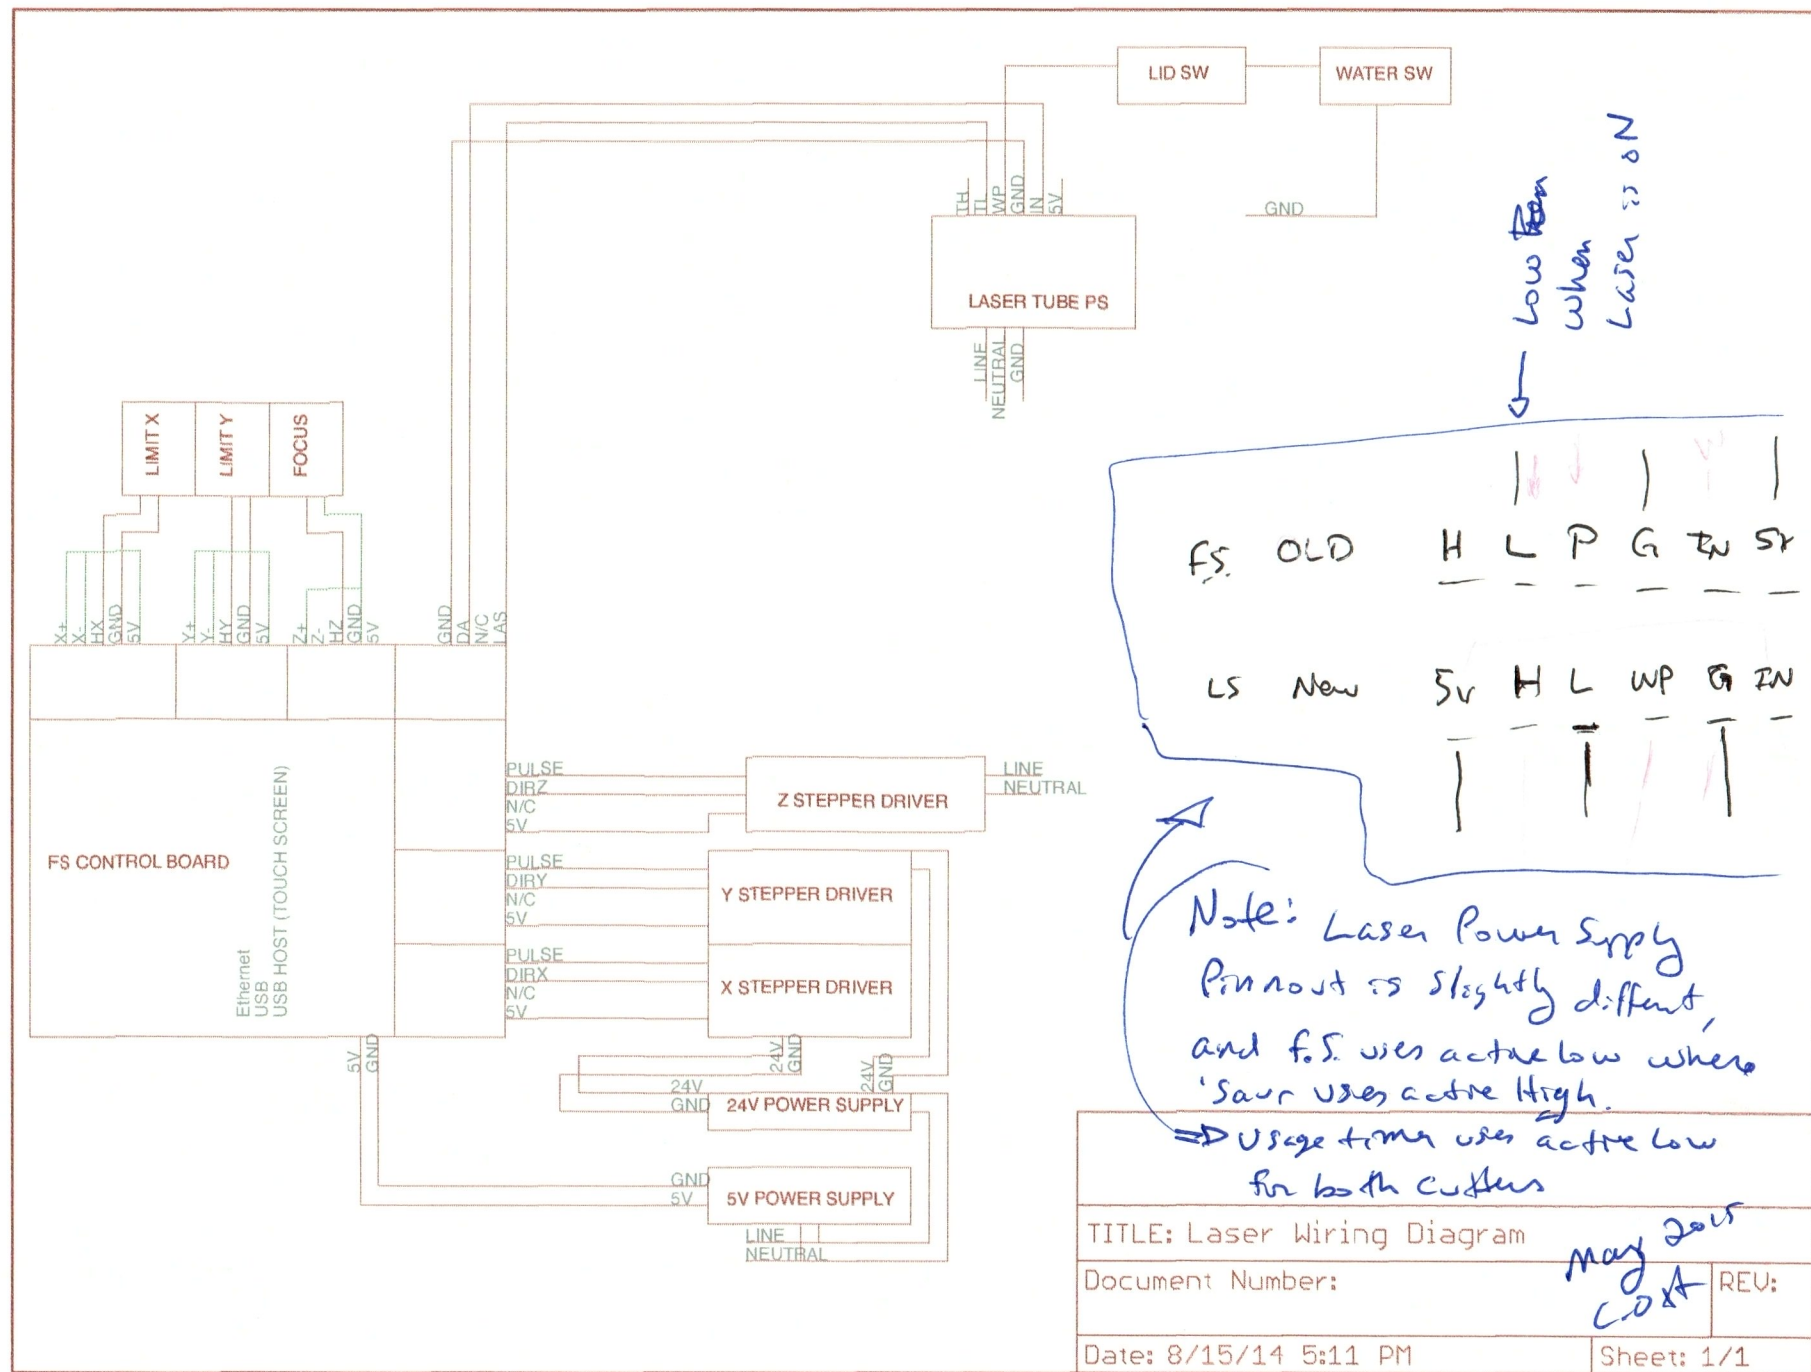 LID SW
WATER SW
TH
TL
WP
GND
IN
5V
GND
LASER TUBE PS
LINE
NEUTRAL
GND
Low
when
Laser is ON
LIMIT X
LIMIT Y
FOCUS
FS. OLD H L P G IN 5V
LS New 5V H L WP G IN
X+
X-
HX
GND
5V
Y+
Y-
HY
GND
5V
Z+
Z-
HZ
GND
5V
GND
DA
N/C
LAS
PULSE
DIRZ
N/C
5V
Z STEPPER DRIVER
LINE
NEUTRAL
FS CONTROL BOARD
Ethernet
USB
USB HOST (TOUCH SCREEN)
PULSE
DIRY
N/C
5V
Y STEPPER DRIVER
PULSE
DIRX
N/C
5V
X STEPPER DRIVER
5V
GND
24V
GND
24V
GND
24V
GND
24V POWER SUPPLY
GND
5V
5V POWER SUPPLY
LINE
NEUTRAL
Note: Laser Power Supply
Pinnout is slightly different,
and F.S. uses active low where
'Saur uses active High.
⇒ Usage timer uses active low
for both cutters
TITLE: Laser Wiring Diagram
May 2015
Document Number:
REV:
Date: 8/15/14 5:11 PM
Sheet: 1/1